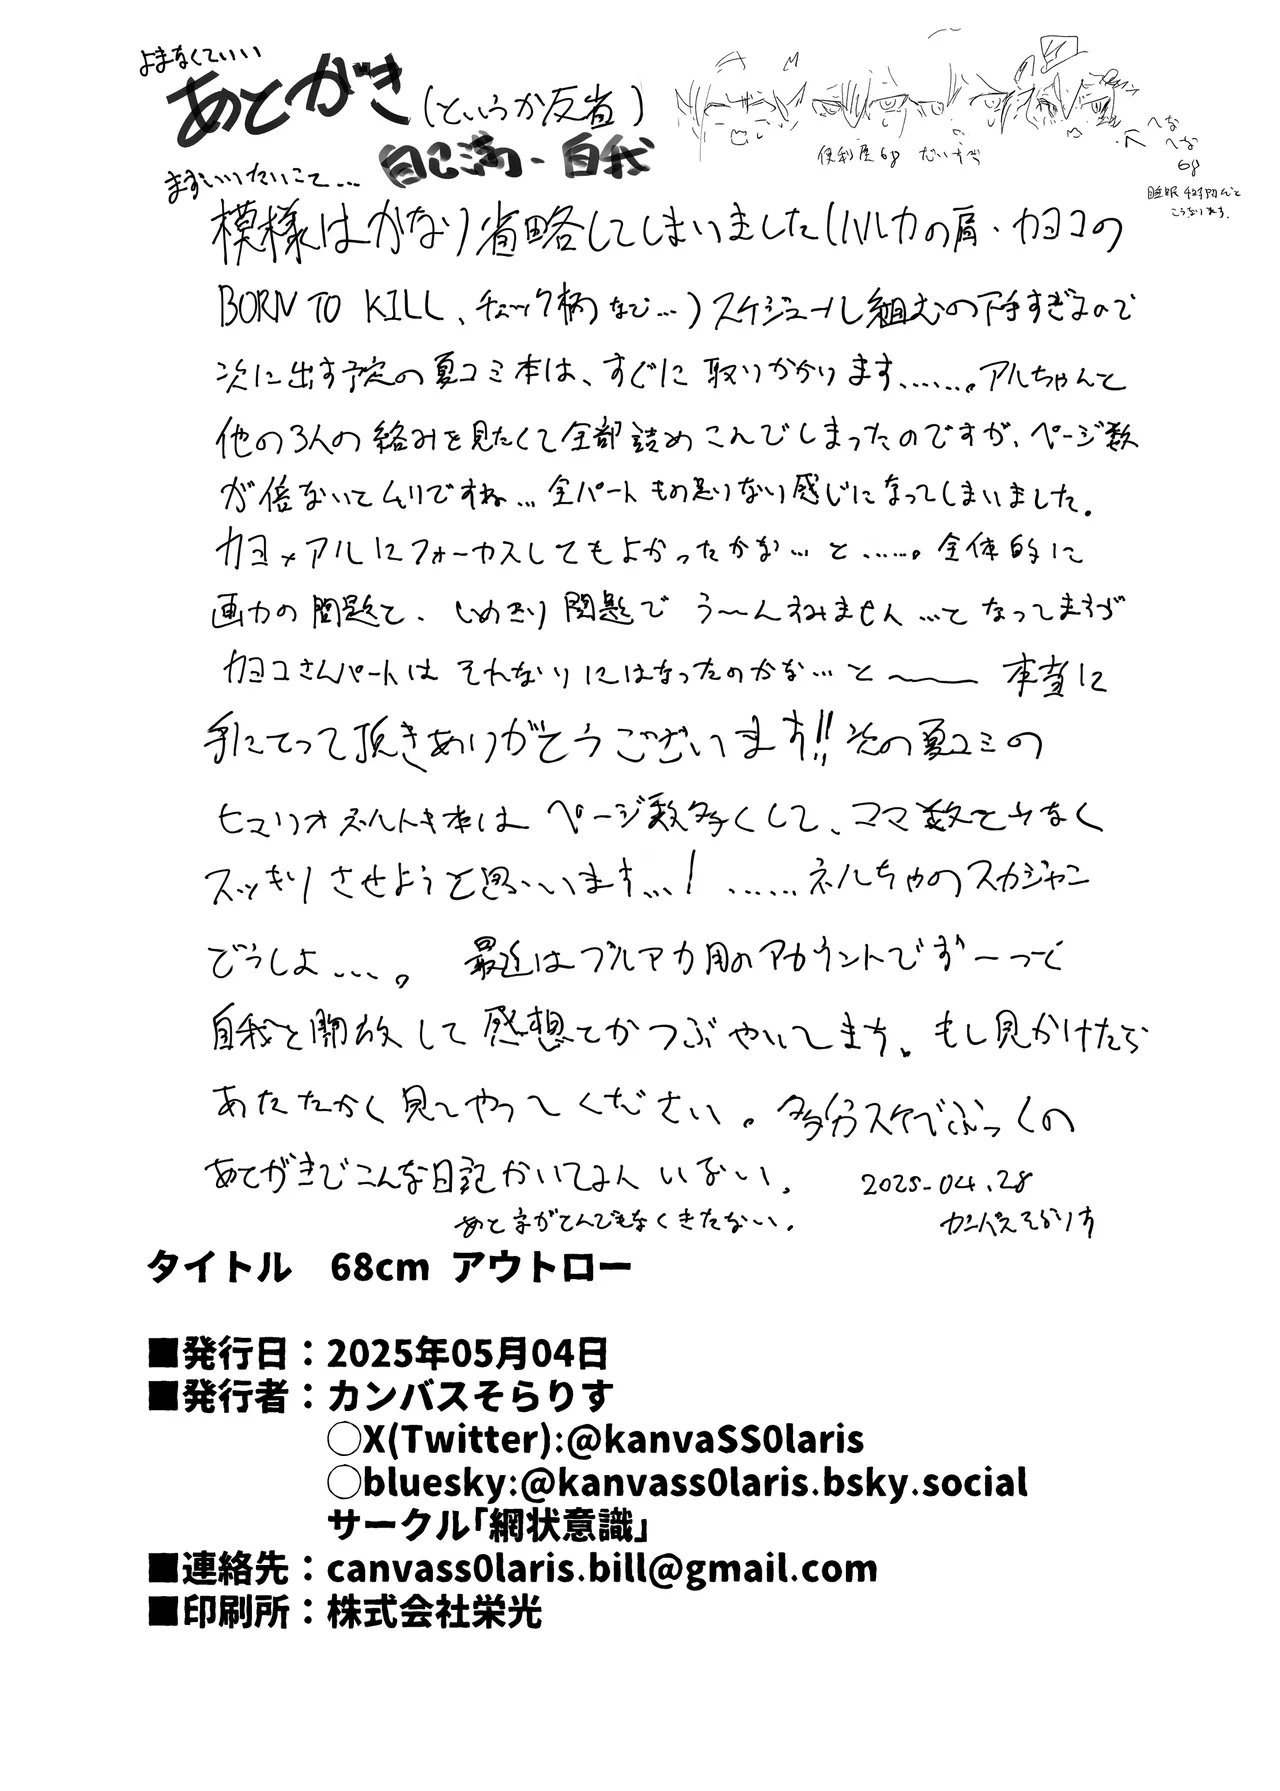 よまなくていい
あとがき(というか反省)
自己満・自我
便利屋68 だいすき
へな
へな
68
睡眠4時間だと
こうなります.
まずいいたいこと…
模様はかなり省略してしまいました(ハルカの肩・カヨコの
BORN TO KILL、チェック柄など…)スケジュール組むの下手すぎるので
次に出す予定の夏コミ本は、すぐに取りかかります……。アルちゃんと
他の3人の絡みを見たくて全部詰めこんでしまったのですが、ページ数
が倍ないとムリですね…全パートもの足りない感じになってしまいました。
カヨ×アルにフォーカスしてもよかったかな…と……。全体的に
画力の問題と、しめきり問題でう〜んすみません…となってますが
カヨコさんパートはそれなりにはなったのかな…と〜〜 本当に
手にとって頂きありがとうございます!!次の夏コミの
ヒマリオネルトキ本はページ数多くして、コマ数を少なく
スッキリさせようと思います…! ……ネルちゃのスカジャン
どうしよ…。 最近はブルアカ用のアカウントでずーっと
自我を開放して感想とかつぶやいてます。もし見かけたら
あたたかく見てやってください。多分スケベぶっくの
あとがきでこんな日記かいてる人いない。 2025.04.28
あと字がとんでもなくきたない. カンバスそらりす
タイトル 68cm アウトロー
■発行日：2025年05月04日
■発行者：カンバスそらりす
○X(Twitter):@kanvaSS0laris
○bluesky:@kanvass0laris.bsky.social
サークル「網状意識」
■連絡先：canvass0laris.bill@gmail.com
■印刷所：株式会社栄光